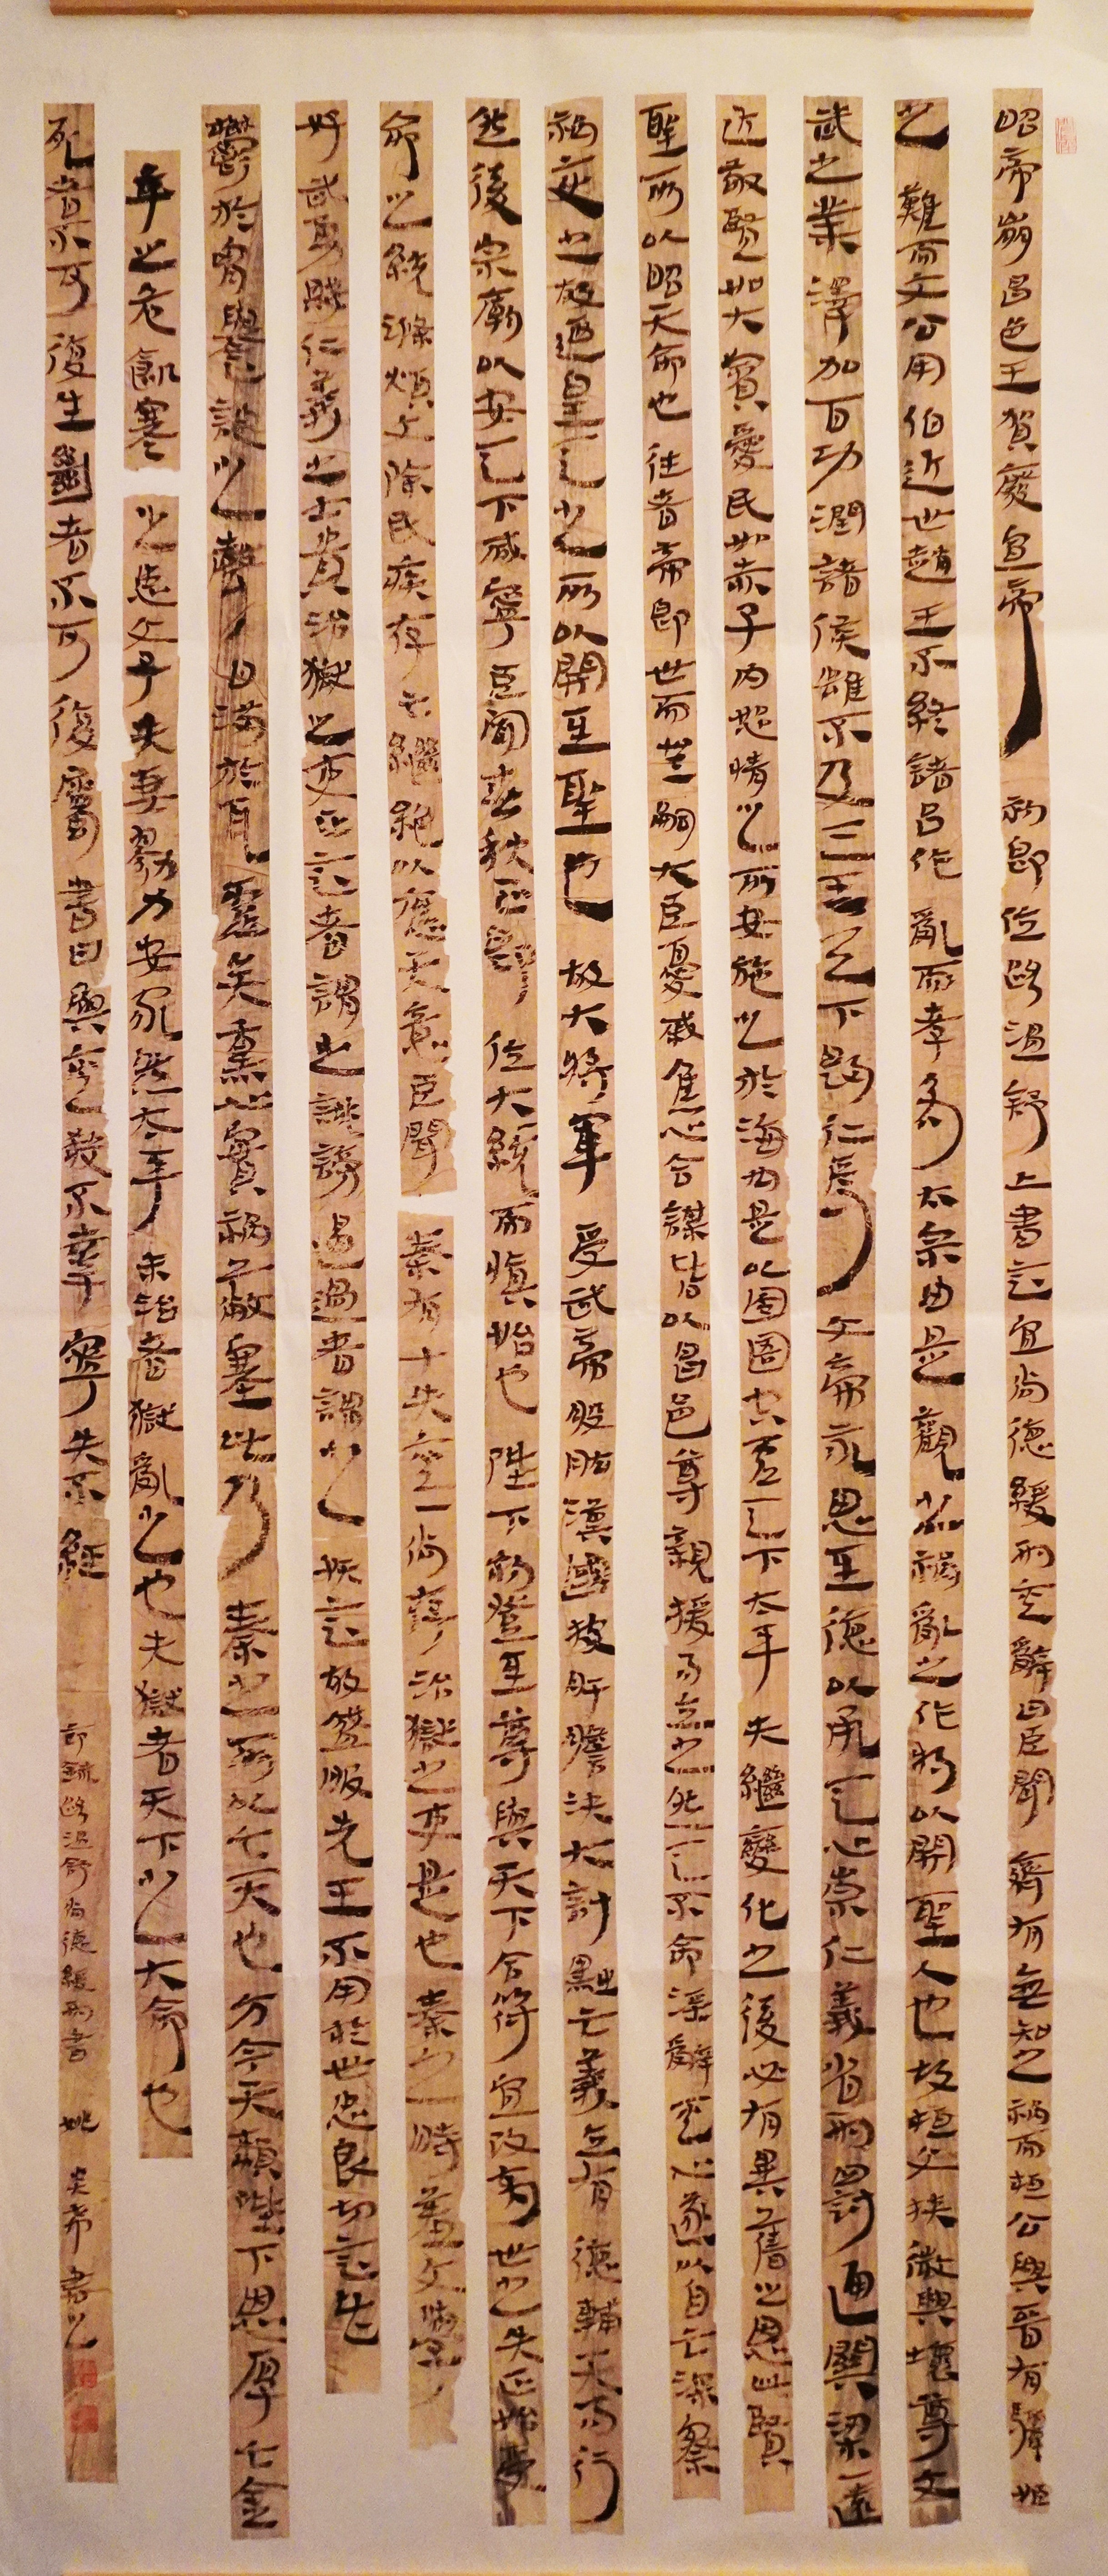 昭帝崩昌邑王賀廢宣帝初即位路溫舒上書言宜尚德緩刑其辭曰臣聞齊有無知之禍而桓公興晉有驪姬
之難而文公用伯近世趙王不終諸呂作亂而孝為太宗由是觀之禍亂之作將以開聖人也故桓文扶微興壞尊文
武之業澤加百功潤諸侯雖不及三王天下歸仁焉文帝永思至德以承天心崇仁義省刑罰通關梁一遠
近敬賢如大賓愛民如赤子內恕情之所安施之於海內是以囹圄空虛天下太平夫繼變化之後必有異舊之恩此賢
聖所以昭天命也往者帝即世而無嗣大臣憂戚焦心合謀皆以昌邑尊親援而立之然天不命淫亂其心遂以自亡深察
禍變之故迺皇天之所以開至聖也故大將軍受武帝股肱漢國披肝膽決大計黜亡義立有德輔天而行
然後宗廟以安天下咸寧臣聞春秋正即位大統而慎始也陛下初登至尊與天下合符宜改前世之失正始受
命之統滌煩文除民疾存亡繼絕以應天意臣聞秦有十失其一尚存治獄之吏是也秦之時羞文學
好武勇賤仁義之士貴治獄之吏正言者謂之誹謗遏過者謂之妖言故盛服先王不用於世忠良切言皆
鬱於胸譽諛之聲日滿於耳虛美熏心實禍蔽塞此乃秦之所以亡天也方今天賴陛下恩厚亡金
革之危飢寒之患父子夫妻勠力安家然太平未洽者獄亂之也夫獄者天下之大命也
死者不可復生𢇍者不可復屬書曰與其殺不辜寧失不經
節錄路溫舒尚德緩刑書 姚